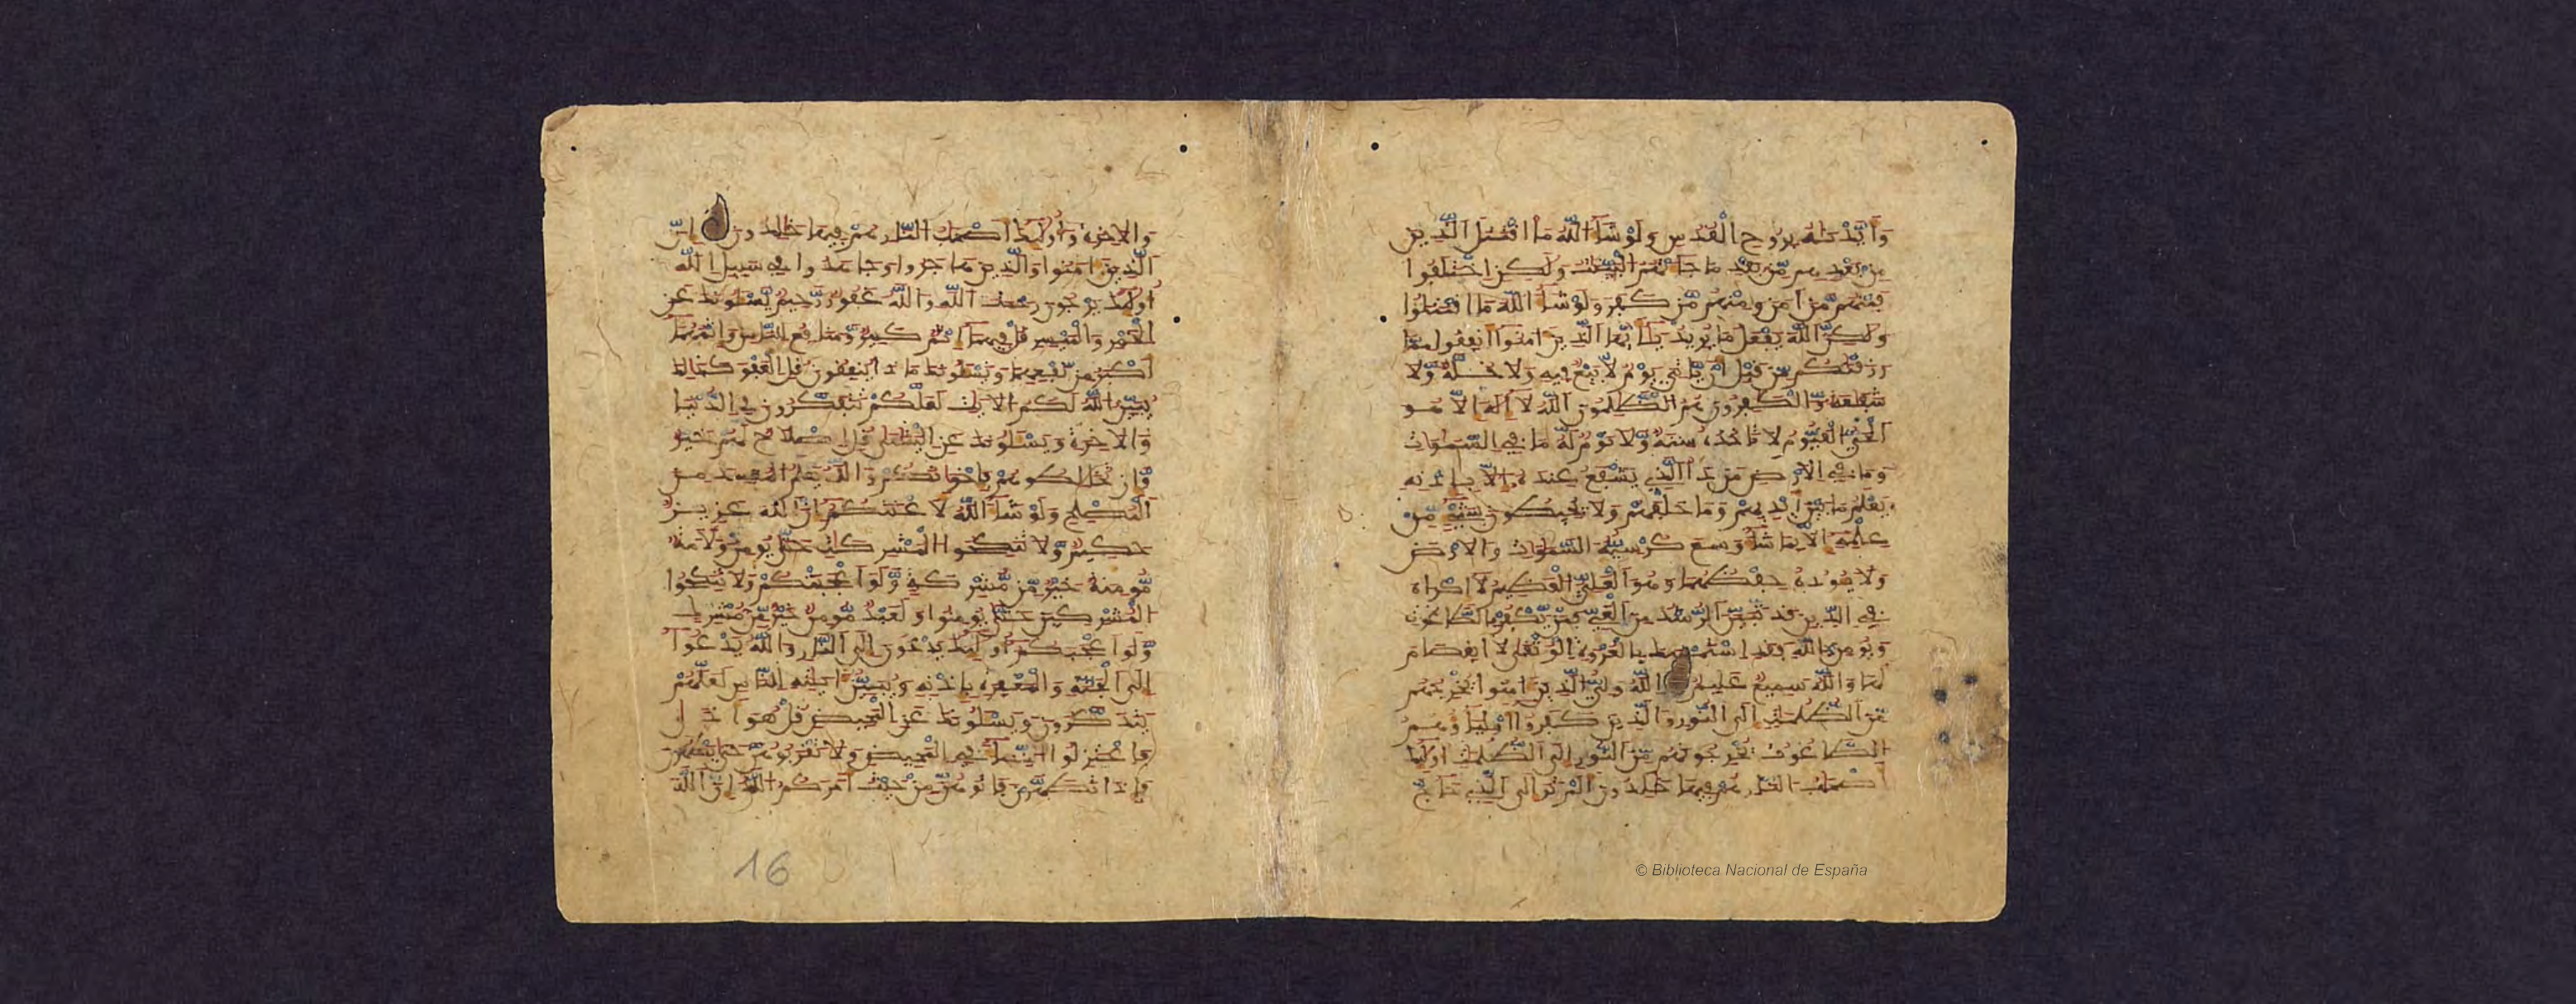 وأيدناه بروح القدس ولو شا الله ما اقتتل الذين
من بعدهم من بعد ما جاتهم البينت ولكن اختلفوا
فمنهم من امن ومنهم من كفر ولو شا الله ما اقتتلوا
ولكن الله يفعل ما يريد يايها الذين امنوا انفقوا مما
رزقنكم من قبل ان ياتي يوم لا بيع فيه ولا خلة ولا
شفعة والكفرون هم الظلمون الله لا اله الا هو
الحي القيوم لا تاخذه سنة ولا نوم له ما في السموات
وما في الارض من ذا الذي يشفع عنده الا باذنه
يعلم ما بين ايديهم وما خلفهم ولا يحيطون بشيء من
علمه الا بما شا وسع كرسيه السموات والارض
ولا يوده حفظهما وهو العلي العظيم لا اكراه
في الدين قد تبين الرشد من الغي فمن يكفر بالطاغوت
ويومن بالله فقد استمسك بالعروة الوثقى لا انفصام
لها والله سميع عليم الله ولي الذين امنوا يخرجهم
من الظلمت الى النور والذين كفروا اولياوهم
الطاغوت يخرجونهم من النور الى الظلمت اوليك
اصحاب النار هم فيها خلدون الم تر الى الذي حاج
© Biblioteca Nacional de España
والاخرة واوليك اصحاب النار هم فيها خالدون ان
الذين امنوا والذين هاجروا وجاهدوا في سبيل الله
اوليك يرجون رحمت الله والله غفور رحيم يسلونك عن
الخمر والميسر قل فيهما اثم كبير ومنافع للناس واثمهما
اكبر من نفعهما ويسلونك ماذا ينفقون قل العفو كذالك
يبين الله لكم الايات لعلكم تتفكرون في الدنيا
والاخرة ويسلونك عن اليتامى قل اصلاح لهم خير
وان تخالطوهم فاخوانكم والله يعلم المفسد من
المصلح ولو شا الله لاعنتكم ان الله عزيز
حكيم ولا تنكحوا المشركات حتى يومن ولامة
مومنة خير من مشركة ولو اعجبتكم ولا تنكحوا
المشركين حتى يومنوا ولعبد مومن خير من مشرك
ولو اعجبكم اوليك يدعون الى النار والله يدعوا
الى الجنة والمغفرة باذنه ويبين اياته للناس لعلهم
يتذكرون ويسلونك عن المحيض قل هو اذى
فاعتزلوا النسا في المحيض ولا تقربوهن حتى يطهرن
فاذا تطهرن فاتوهن من حيث امركم الله ان الله
16